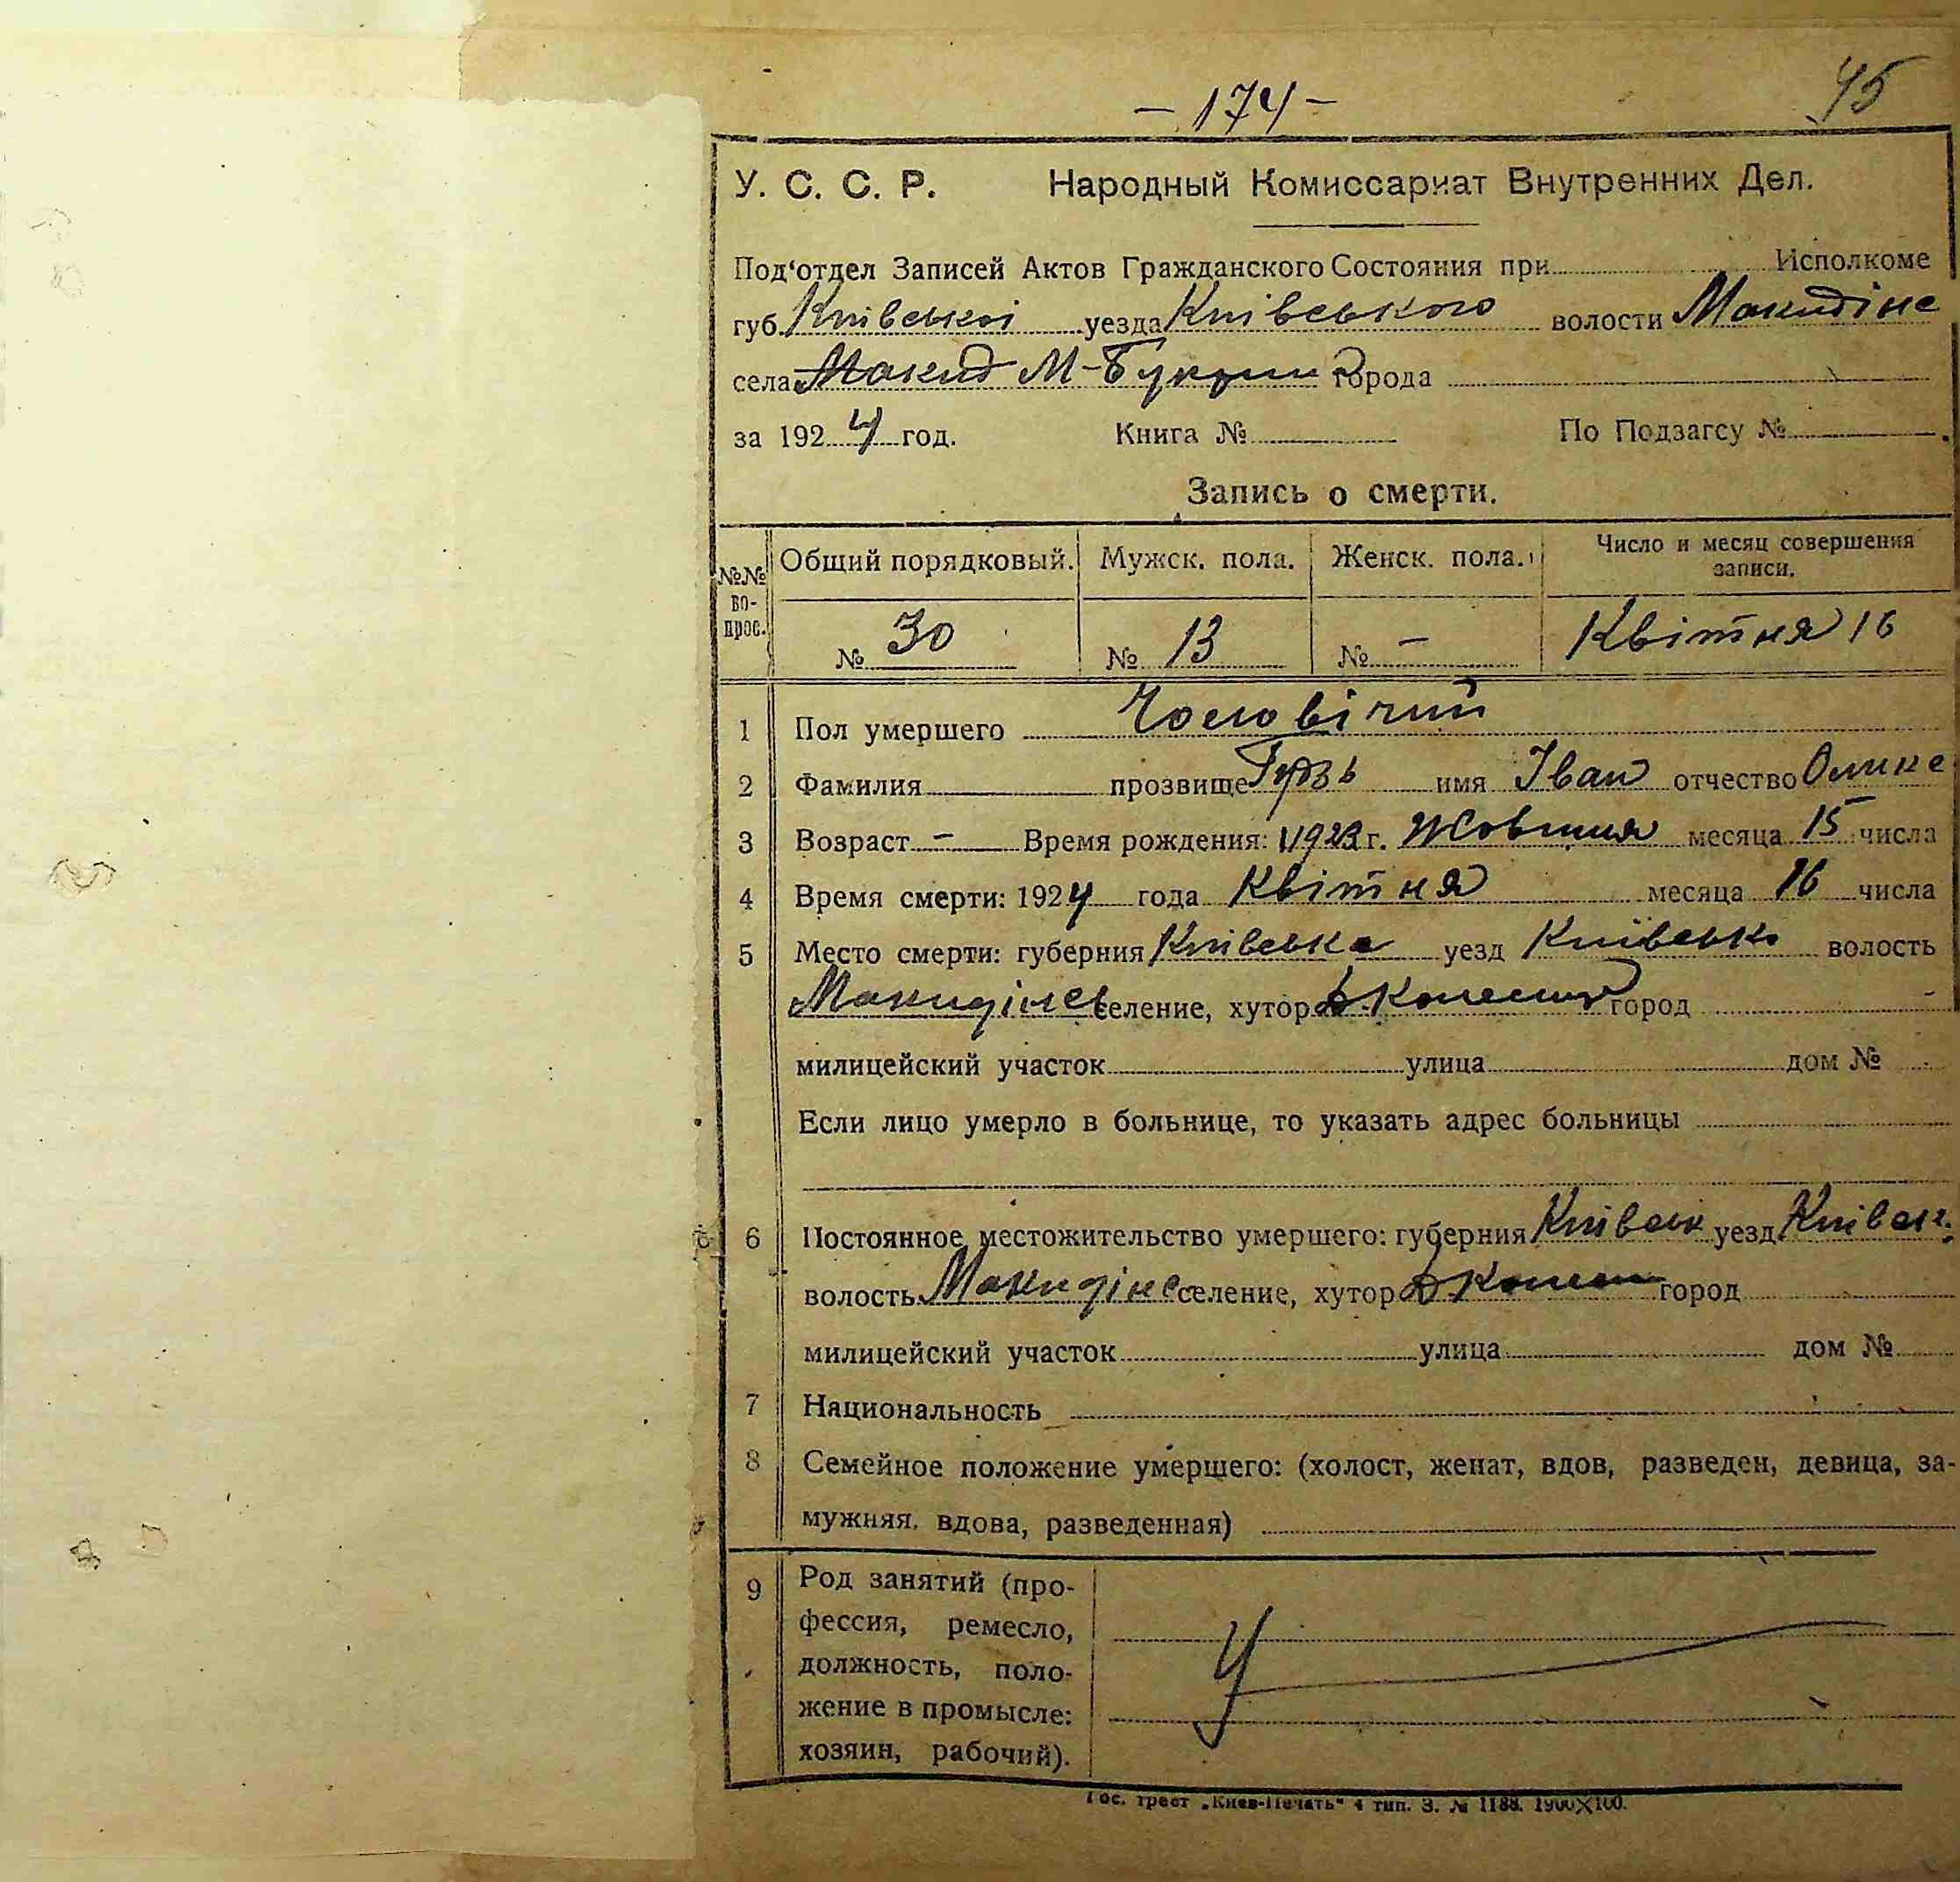 - 174 -
45
У. С. С. Р. Народный Комиссариат Внутренних Дел.
Под'отдел Записей Актов Гражданского Состояния при Исполкоме
губ. Київської уезда Київського волости Макидінс
села М-Букрин города
за 1924 год. Книга № По Подзагсу №
Запись о смерти.
№№ вопрос. Общий порядковый. Мужск. пола. Женск. пола. Число и месяц совершения записи.
№ 30 № 13 № - Квітня 16
1 Пол умершего Чоловічий
2 Фамилия прозвище Гудзь имя Іван отчество Олике
3 Возраст - Время рождения: 1923 г. Жовтня месяца 15 числа
4 Время смерти: 1924 года Квітня месяца 16 числа
5 Место смерти: губерния Київська уезд Київськ волость
Макидінс селение, хутор город
милицейский участок улица дом №
Если лицо умерло в больнице, то указать адрес больницы
6 Постоянное местожительство умершего: губерния Київськ уезд Київськ.
волость Макидінс селение, хутор город
милицейский участок улица дом №
7 Национальность
8 Семейное положение умершего: (холост, женат, вдов, разведен, девица, за-
мужняя, вдова, разведенная)
9 Род занятий (про-
фессия, ремесло,
должность, поло-
жение в промысле:
хозяин, рабочий).
Гос. трест „Киев-Печать" 4 тип. З. № 1188. 1900×100.